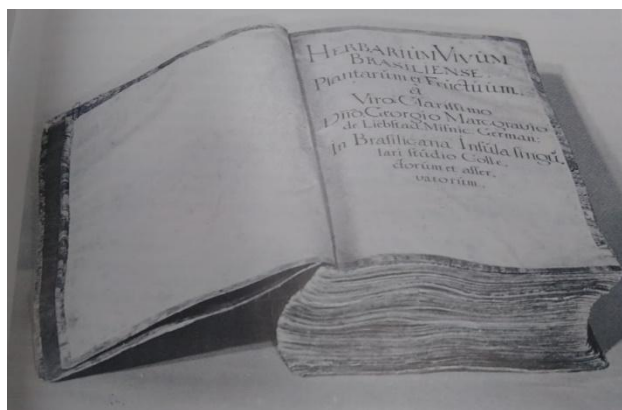 HERBARIÙM VIVÙM
BRASILIENSE
Plantarùm et Frùctùùm,
â
Viro Clarissimo
Dnō. Georgio Marcgravio
de Liebstad, Misnic. German:
In Brasilicana Insùla singù,
lari stùdio Colle,
ctorùm et asser,
vatorùm.